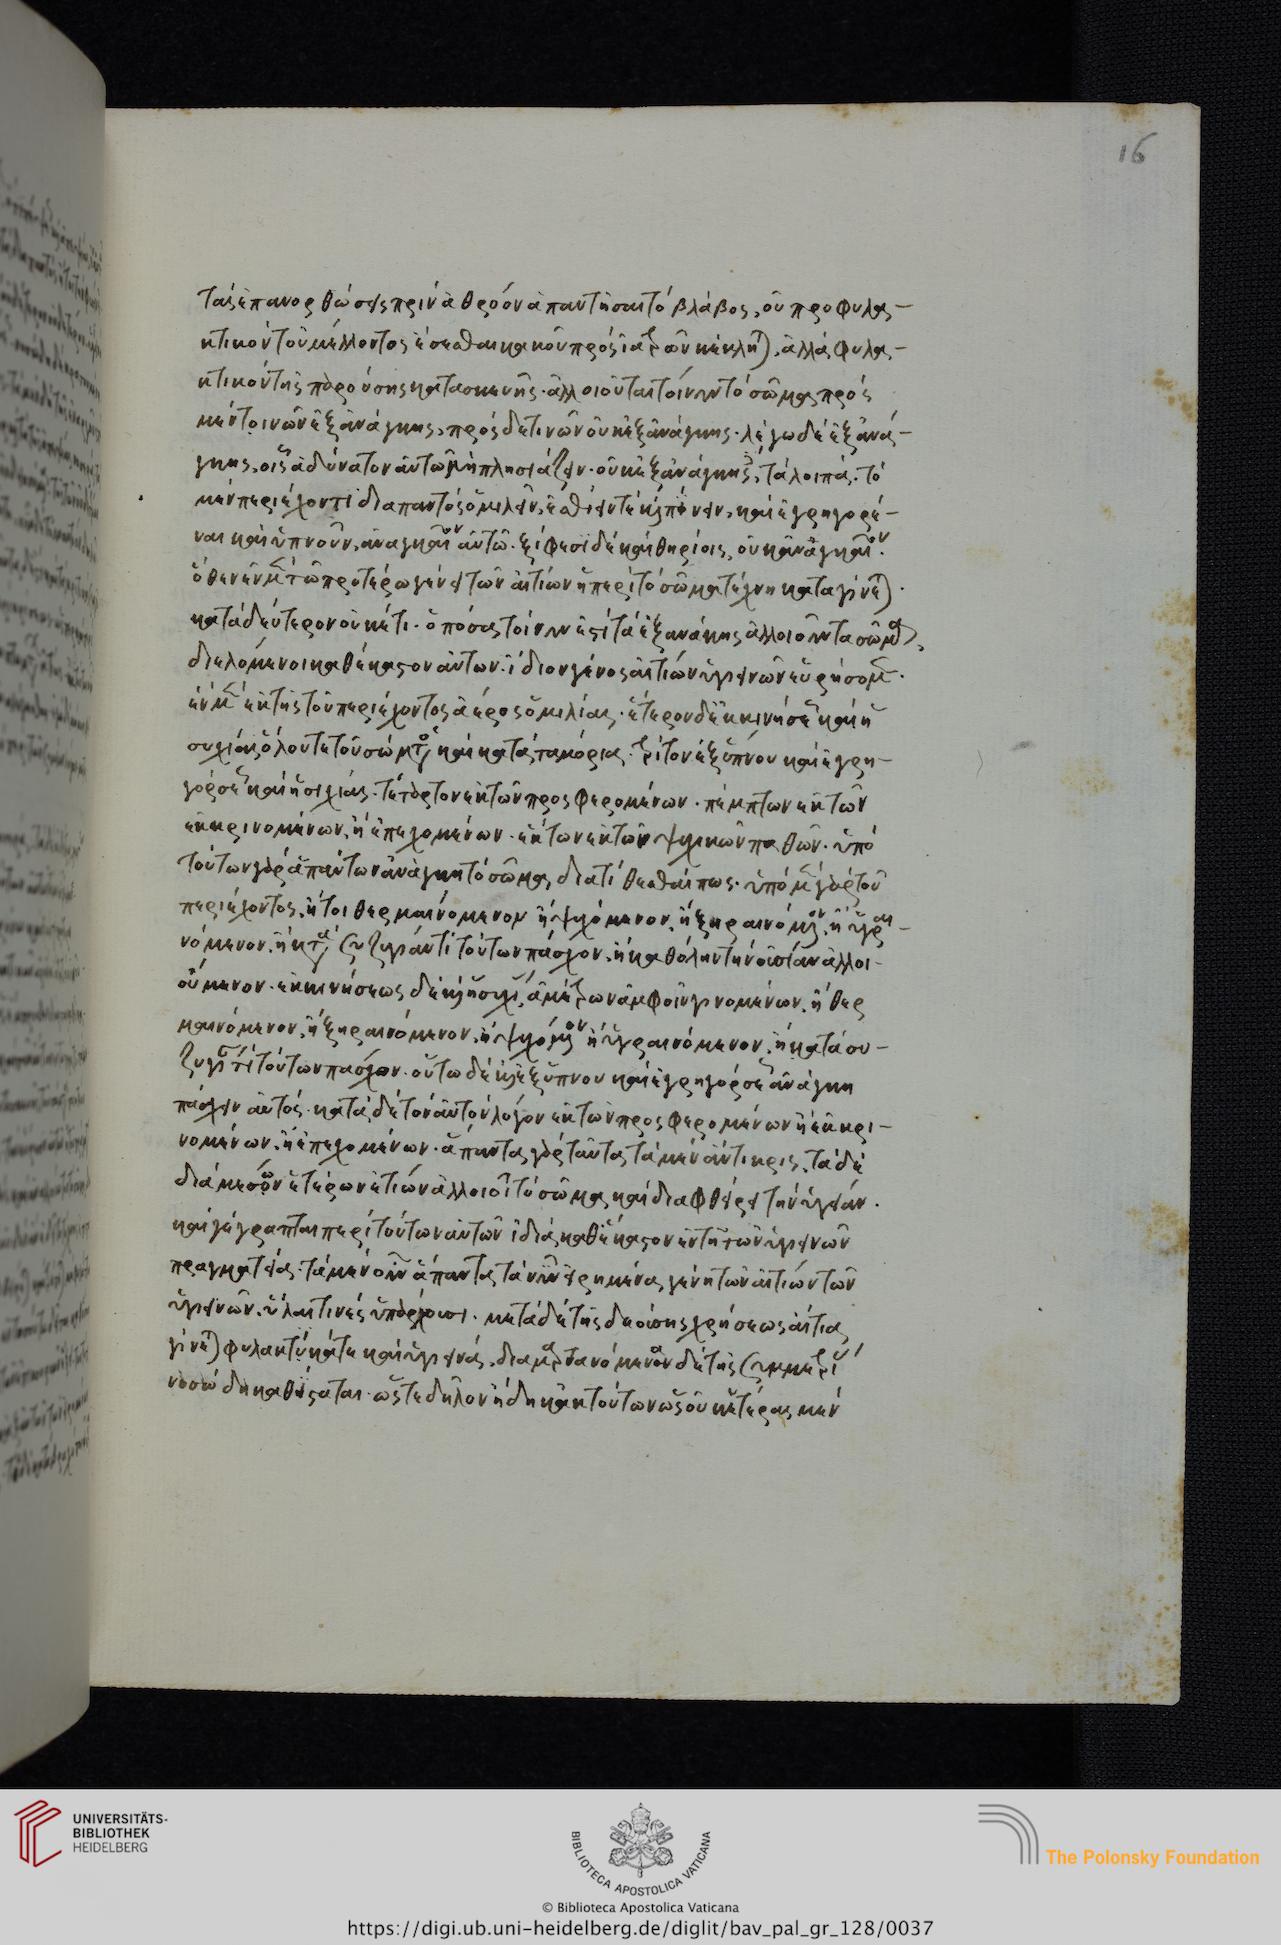 16
τὰς ἐπανορθώσεις πρὶν ἀθρόον ἀπαντῆσαι τὸ βλάβος, οὐ προφυλα-
κτικὸν τοῦ μέλλοντος ἔσεσθαι κακοῦ πρὸς ἰατρῶν κέκληται, ἀλλὰ φυλα-
κτικὸν τῆς παρούσης κατασκευῆς. ἀλλοιοῦται τοίνυν τὸ σῶμα πρὸς
μέν τοι νῶν ἐξ ἀνάγκης, πρὸς δέ τινων οὐκ ἐξ ἀνάγκης. λέγω δὲ ἐξ ἀνά-
γκης, οἷς ἀδύνατον αὐτῷ μὴ πλησιάζειν. οὐκ ἐξ ἀνάγκης δὲ, τὰ λοιπά. τῷ
μὲν περιέχοντι διαπαντὸς ὁμιλεῖν, ἐσθίειν τὲ καὶ πίνειν, καὶ ἐγρηγορέ-
ναι καὶ ὑπνοῦν, ἀναγκαῖον αὐτῷ. ξίφεσι δὲ καὶ θηρίοις, οὐκ ἀναγκαῖον.
ὅθεν ἐν μὲν τῷ προτέρῳ γένει τῶν αἰτίων ἡ περὶ τὸ σῶμα τέχνη καταγίνεται.
κατὰ δεύτερον οὐκέτι. ὁπόσα τοίνυν ἐστὶ τὰ ἐξανάκης ἀλλοιοῦντα σῶματα,
διελόμενοι καθέκαστον αὐτῶν. ἴδιον γένος αἰτιῶν ὑγιεινῶν εὑρήσομεν.
ἓν μὲν ἐκ τῆς τοῦ περιέχοντος ἀέρος ὁμιλίας. ἕτερον δὲ ἐκ κινήσεως καὶ ἡ
συχίας ὅλου τε τοῦ σώματος καὶ κατὰ τα μόρια. τρίτον ἐξ ὕπνου καὶ ἐγρη-
γόρσεως καὶ ἡσιχίας. τέταρτον ἐκ τῶν προσφερομένων. πέμπτων ἐκ τῶν
ἐκκρινομένων, ἢ ἐπεχομένων. ἕκτων ἐκ τῶν ψυχικῶν παθῶν. ὑπὸ
τούτων γὰρ ἁπάντων ἀνάγκη τὸ σῶμα διατίθεσθαί πως. ὑπὸ μὲν γὰρ τοῦ
περιέχοντος, ἤτοι θερμαινόμενον ἢ ψυχόμενον, ἢ ξηραινόμενον, ἢ ὑγραι-
νόμενον. ἢ κατὰ συζυγίαν τὶ τούτων πάσχον. ἢ καθόλην τὴν οὐσίαν ἀλλοι-
ούμενον. ἐκ κινήσεως δὲ καὶ ἡσυχίας, ἀμέτρων ἀμφοῖν γινομένων, ἢ θερ
μαινόμενον, ἢ ξηραινόμενον, ἢ ψυχόμενον ἢ ὑγραινόμενον, ἢ κατὰ συ-
ζυγίαν τὶ τούτων πάσχων. οὕτω δὲ καὶ ἐξ ὕπνου καὶ ἐγρηγόρσεως ἀνάγκη
πάσχειν αὐτὸς. κατὰ δὲ τὸν αὐτὸν λόγον ἐκ τῶν προσφερομένων ἢ ἐκκρι-
νομένων, ἢ ἐπεχομένων. ἅπαντα γὰρ ταῦτα τὰ μὲν ἄντικρις, τὰ δὲ
διὰ μεσῶν ἑτέρων ἐτιῶν ἀλλοιοῖ τὸ σῶμα καὶ διαφθείρει τὴν ὑγείαν.
καὶ γέγραπται περὶ τούτων αὐτῶν ἰδία καθ' ἕκαστον ἐν τῇ τῶν ὑγιεινῶν
πραγματείας. τὰ μὲν οὖν ἅπαντα τὰ νῦν εἰρημένα γένη τῶν αἰτιῶν τῶν
ὑγιεινῶν, ὕλαι τινὲς ὑπάρχουσι. μετὰ δὲ τῆς δεούσης χρήσεως αἴτια
γίνεται φυλακτικά τε καὶ ὑγιεινά, διαμαρτανόμενον δὲ τῆς συμμετρίας
νοσώδη καθίσταται. ὥστε δῆλον ἤδη κἀκ τούτων ὡς οὐχ ἕτερα μὲν
UNIVERSITÄTS-
BIBLIOTHEK
HEIDELBERG
BIBLIOTECA APOSTOLICA VATICANA
The Polonsky Foundation
© Biblioteca Apostolica Vaticana
https://digi.ub.uni-heidelberg.de/diglit/bav_pal_gr_128/0037